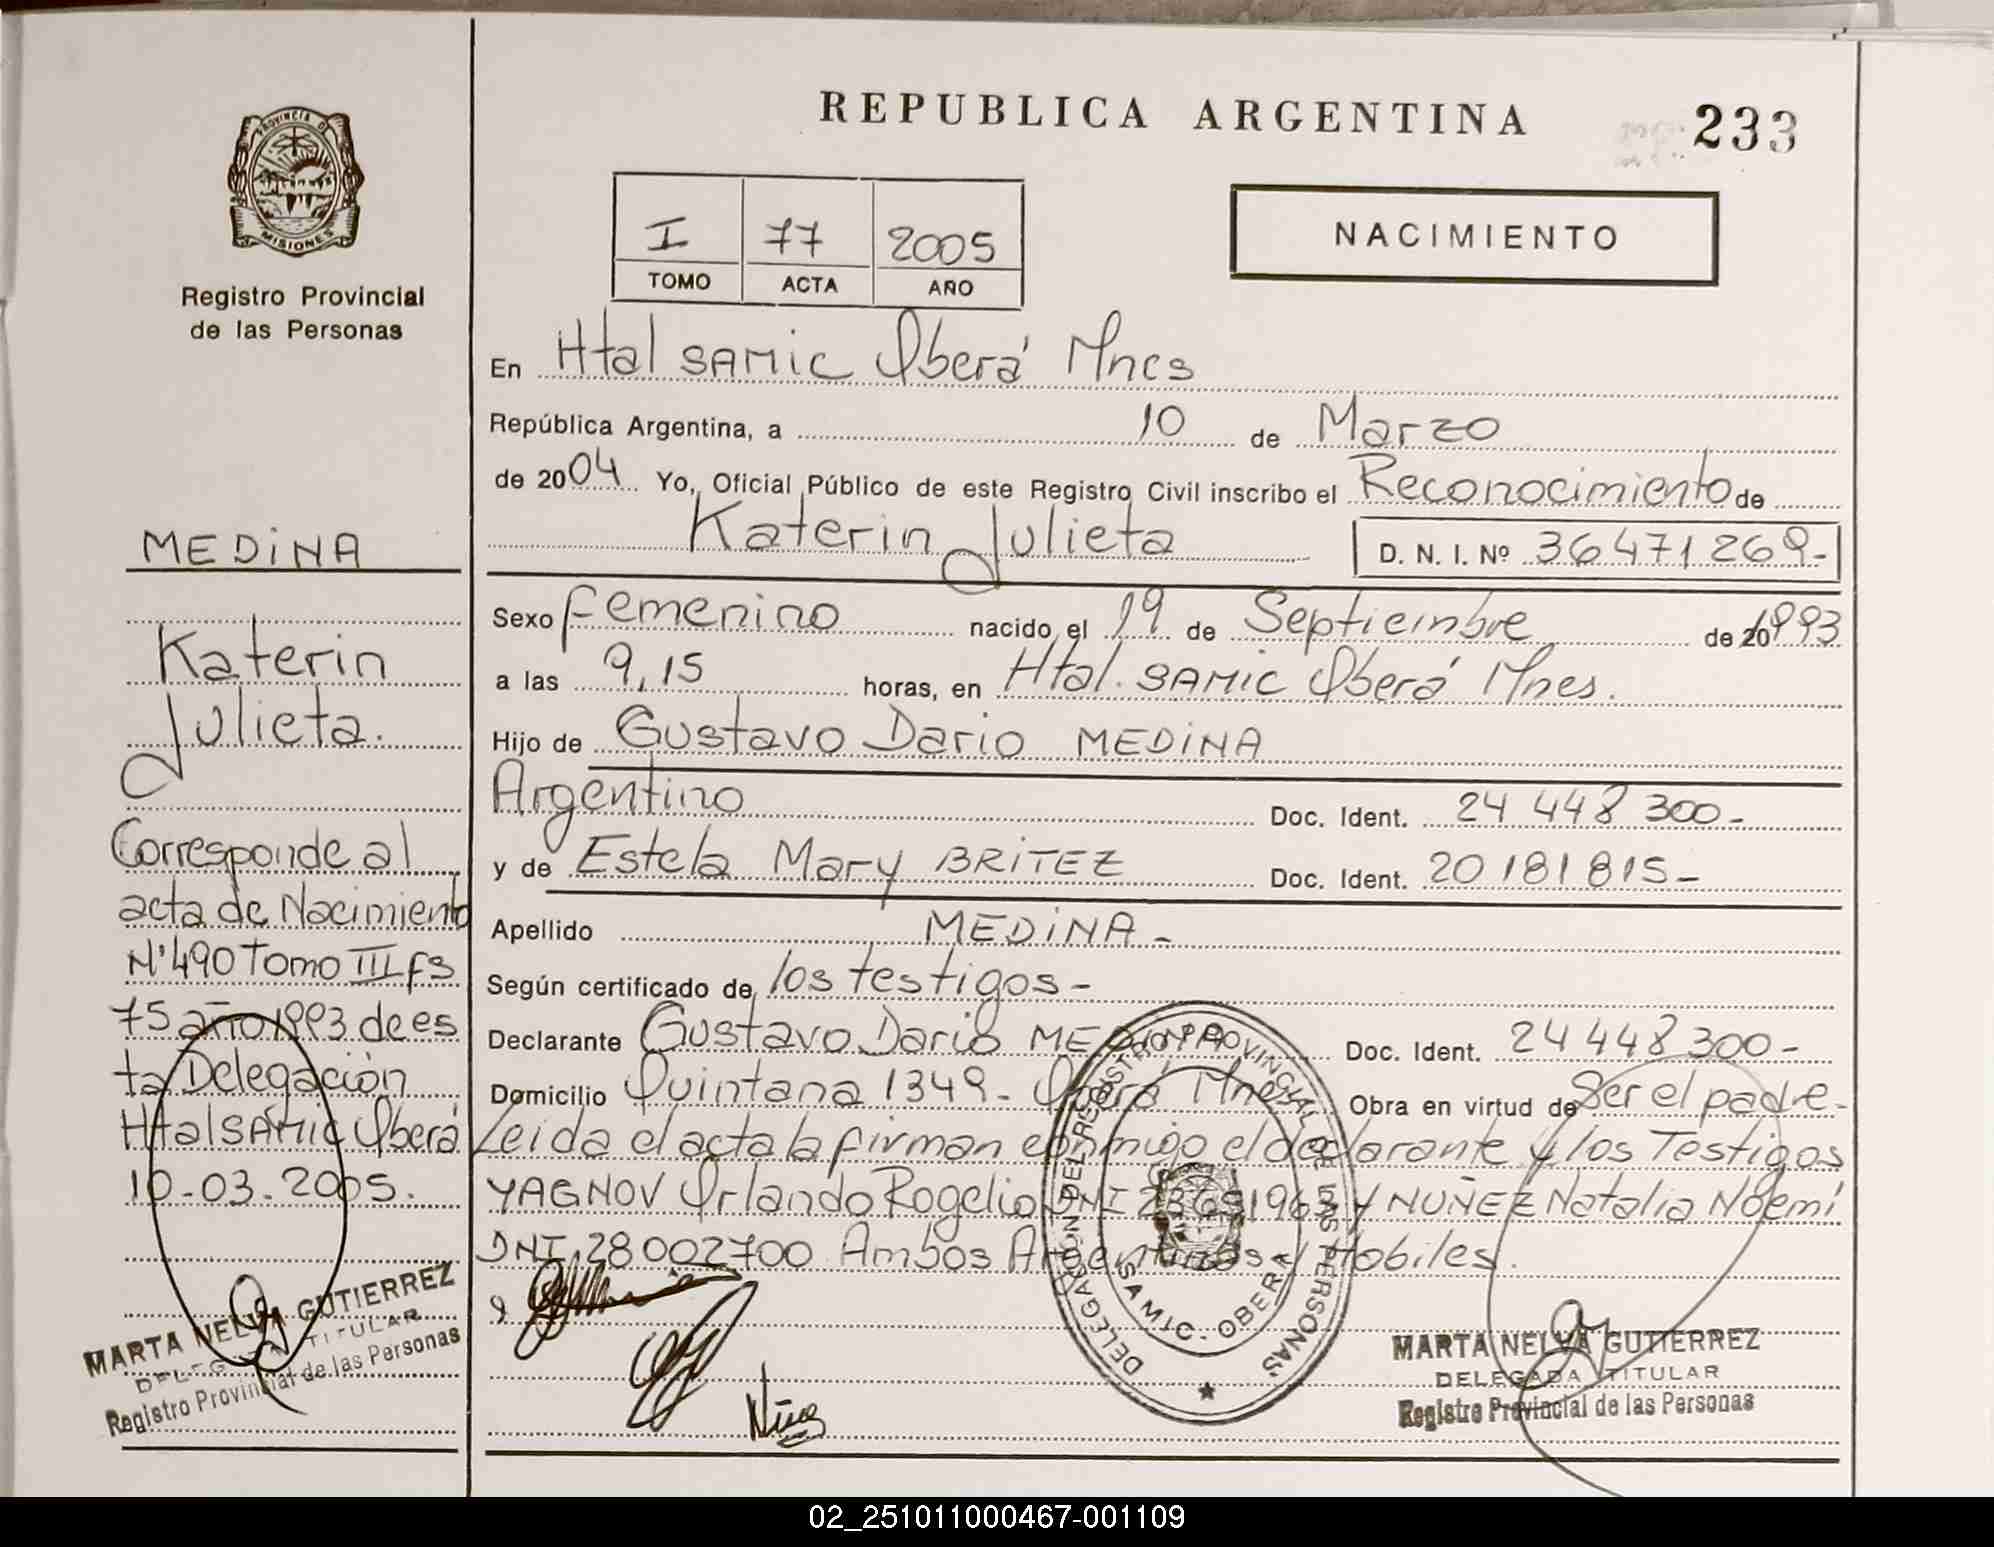 REPUBLICA ARGENTINA
233
PROVINCIA D
MISIONES
Registro Provincial
de las Personas
I 77 2005
TOMO ACTA AÑO
NACIMIENTO
En Htal SAMIC Oberá Mnes
República Argentina, a 10 de Marzo
de 2004 Yo, Oficial Público de este Registro Civil inscribo el Reconocimiento de
Katerin Julieta D. N. I. Nº 36471269-
Sexo Femenino nacido el 19 de Septiembre de 20 1993
a las 9,15 horas, en Htal. SAMIC Oberá Mnes.
Hijo de Gustavo Dario MEDINA
Argentino Doc. Ident. 24 448 300-
y de Estela Mary BRITEZ Doc. Ident. 20 181 815-
Apellido MEDINA-
Según certificado de los testigos-
Declarante Gustavo Dario MEDINA Doc. Ident. 24 448 300-
Domicilio Quintana 1349- Oberá Mnes Obra en virtud de Ser el padre-
Leida el acta la firman conmigo el declarante y los Testigos
YAGNOV Orlando Rogelio DNI 1963 Y NUÑEZ Natalia Noemí
DNI 28 002700 Ambos Argentinos y Hobiles.
MEDINA
Katerin
Julieta.
Corresponde al
acta de Nacimiento
Nº 490 Tomo III fs
75 año 1993 de es
ta Delegación
Htal SAMIC Oberá
10-03-2005.
MARTA NELVA GUTIERREZ
DELEGADA TITULAR
Registro Provincial de las Personas
Núñez
DELEGACION DEL REGISTRO PROVINCIAL DE LAS PERSONAS
SAMIC - OBERA
MARTA NELVA GUTIERREZ
DELEGADA TITULAR
Registro Provincial de las Personas
02_251011000467-001109